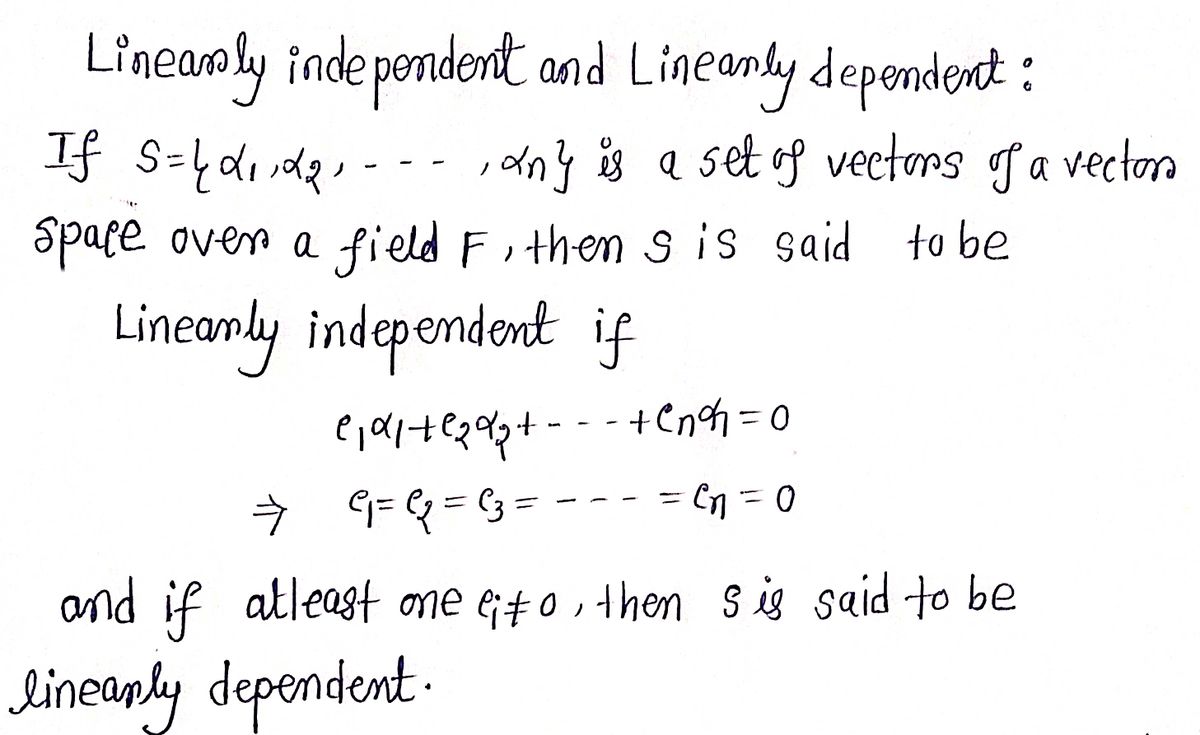 Linearly independent and Linearly dependent :
If S={α₁,α₂, - - - - ,αn} is a set of vectors of a vector
space over a field F, then S is said to be
Linearly independent if
c₁α₁+c₂α₂+ - - - +cnαn = 0
⇒ c₁= c₂ = c₃ = - - - - = cn = 0
and if atleast one ci≠0, then S is said to be
linearly dependent.